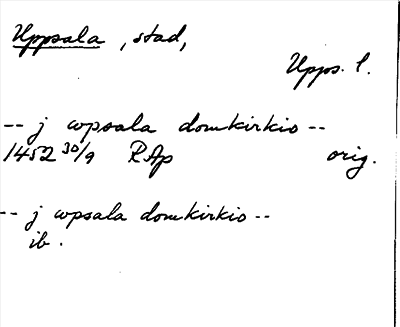 Uppsala, stad,
Upps. l.
-- j wpsala domkirkio --
1452 30/9 RAp orig.
-- j wpsala domkirkio --
ib.